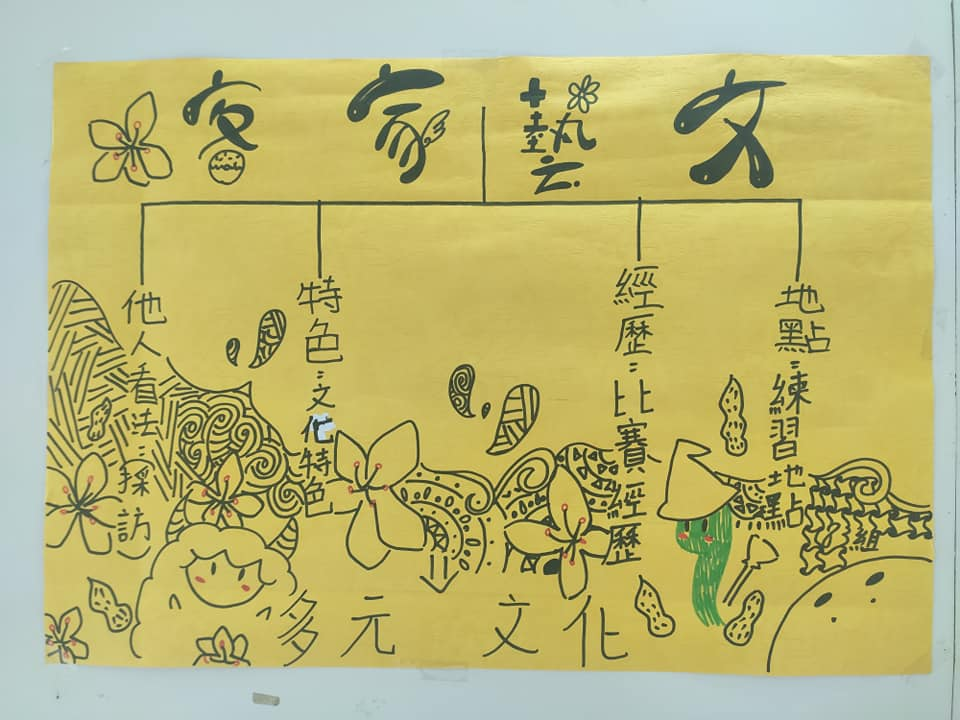 客家藝文
他人看法:採訪
特色:文化特色
經歷:比賽經歷
地點:練習地點
組
多元文化